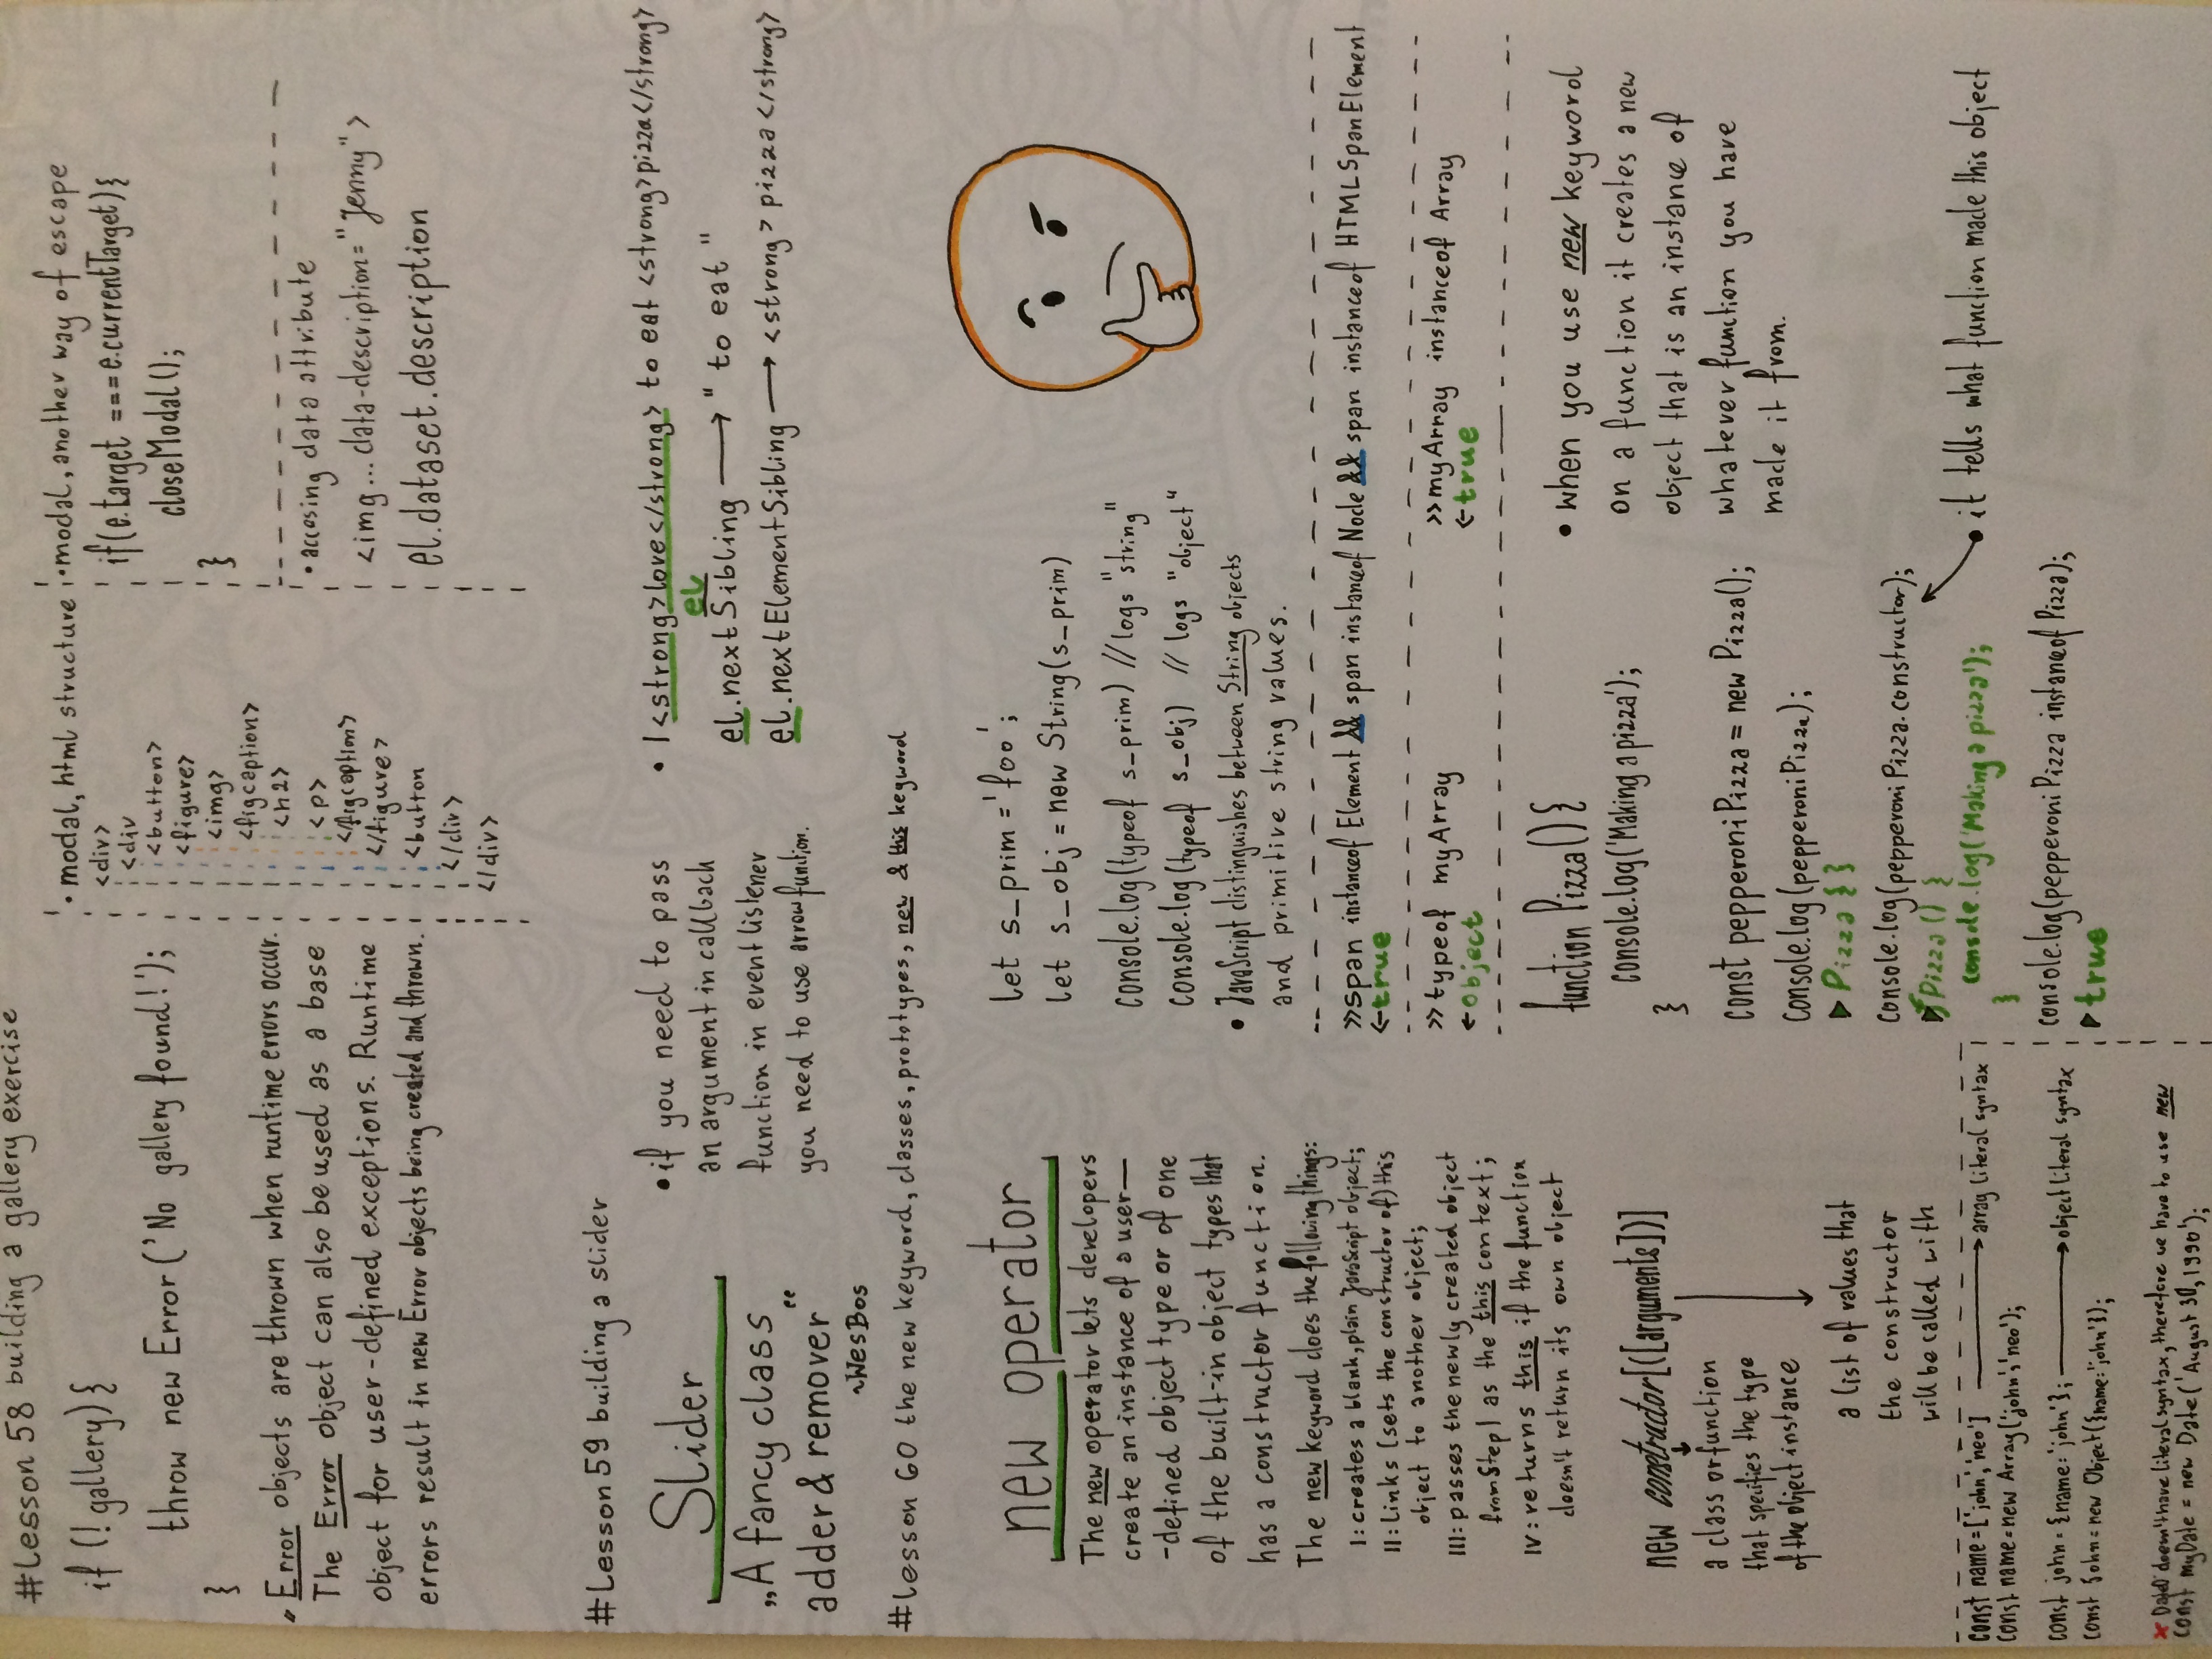 #Lesson 58 building a gallery exercise
if (! gallery) {
throw new Error ('No gallery found!');
}
„ Error objects are thrown when runtime errors occur.
The Error object can also be used as a base
object for user-defined exceptions. Runtime
errors result in new Error objects being created and thrown.
• modal, html structure
<div>
<div
<button>
<figure>
<img>
<figcaption>
<h2>
<p>
</figcaption>
</figure>
<button
</div>
</div>
• modal, another way of escape
if(e.target === e.currentTarget) {
closeModal();
}
• accosing data attribute
<img... data-description="Jenny">
el.dataset.description
#Lesson 59 building a slider
Slider
„A fancy class
adder & remover”
~WesBos
• if you need to pass
an argument in callback
function in event listener
you need to use arrow function.
• I <strong>love</strong> to eat <strong>pizza</strong>
el
el.nextSibling → " to eat "
el.nextElementSibling → <strong> pizza </strong>
#Lesson 60 the new keyword, classes, prototypes, new & this keyword
new operator
The new operator lets developers
create an instance of a user-
-defined object type or of one
of the built-in object types that
has a constructor function.
The new keyword does the following things:
I: creates a blank, plain JavaScript object;
II: Links (sets the constructor of) this
object to another object;
III: passes the newly created object
from Step 1 as the this context;
IV: returns this if the function
doesn't return its own object
new constructor[([arguments])]
a class or function
that specifies the type
of the object instance
a list of values that
the constructor
will be called with
const name = ['john','neo'] → array literal syntax
const name = new Array('john','neo');
const john = {name:'john'}; → object literal syntax
const john = new Object({name:'john'});
× Date() doesn't have literal syntax, therefore we have to use new
const myDate = new Date('August 30, 1990');
let s_prim = 'foo';
let s_obj = new String(s_prim)
console.log(typeof s_prim) // logs "string"
console.log(typeof s_obj) // logs "object"
• JavaScript distinguishes between String objects
and primitive string values.
>>span instanceof Element && span instanceof Node && span instanceof HTMLSpanElement
←true
>>typeof myArray
←object
>>myArray instanceof Array
←true
function Pizza() {
console.log('Making a pizza');
}
const pepperoniPizza = new Pizza();
console.log(pepperoniPizza);
▶ Pizza { }
console.log(pepperoniPizza.constructor);
▶ƒ Pizza () {
console.log('Making a pizza');
}
console.log(pepperoniPizza instanceof Pizza);
▶ true
• when you use new keyword
on a function it creates a new
object that is an instance of
whatever function you have
made it from.
• it tells what function made this object